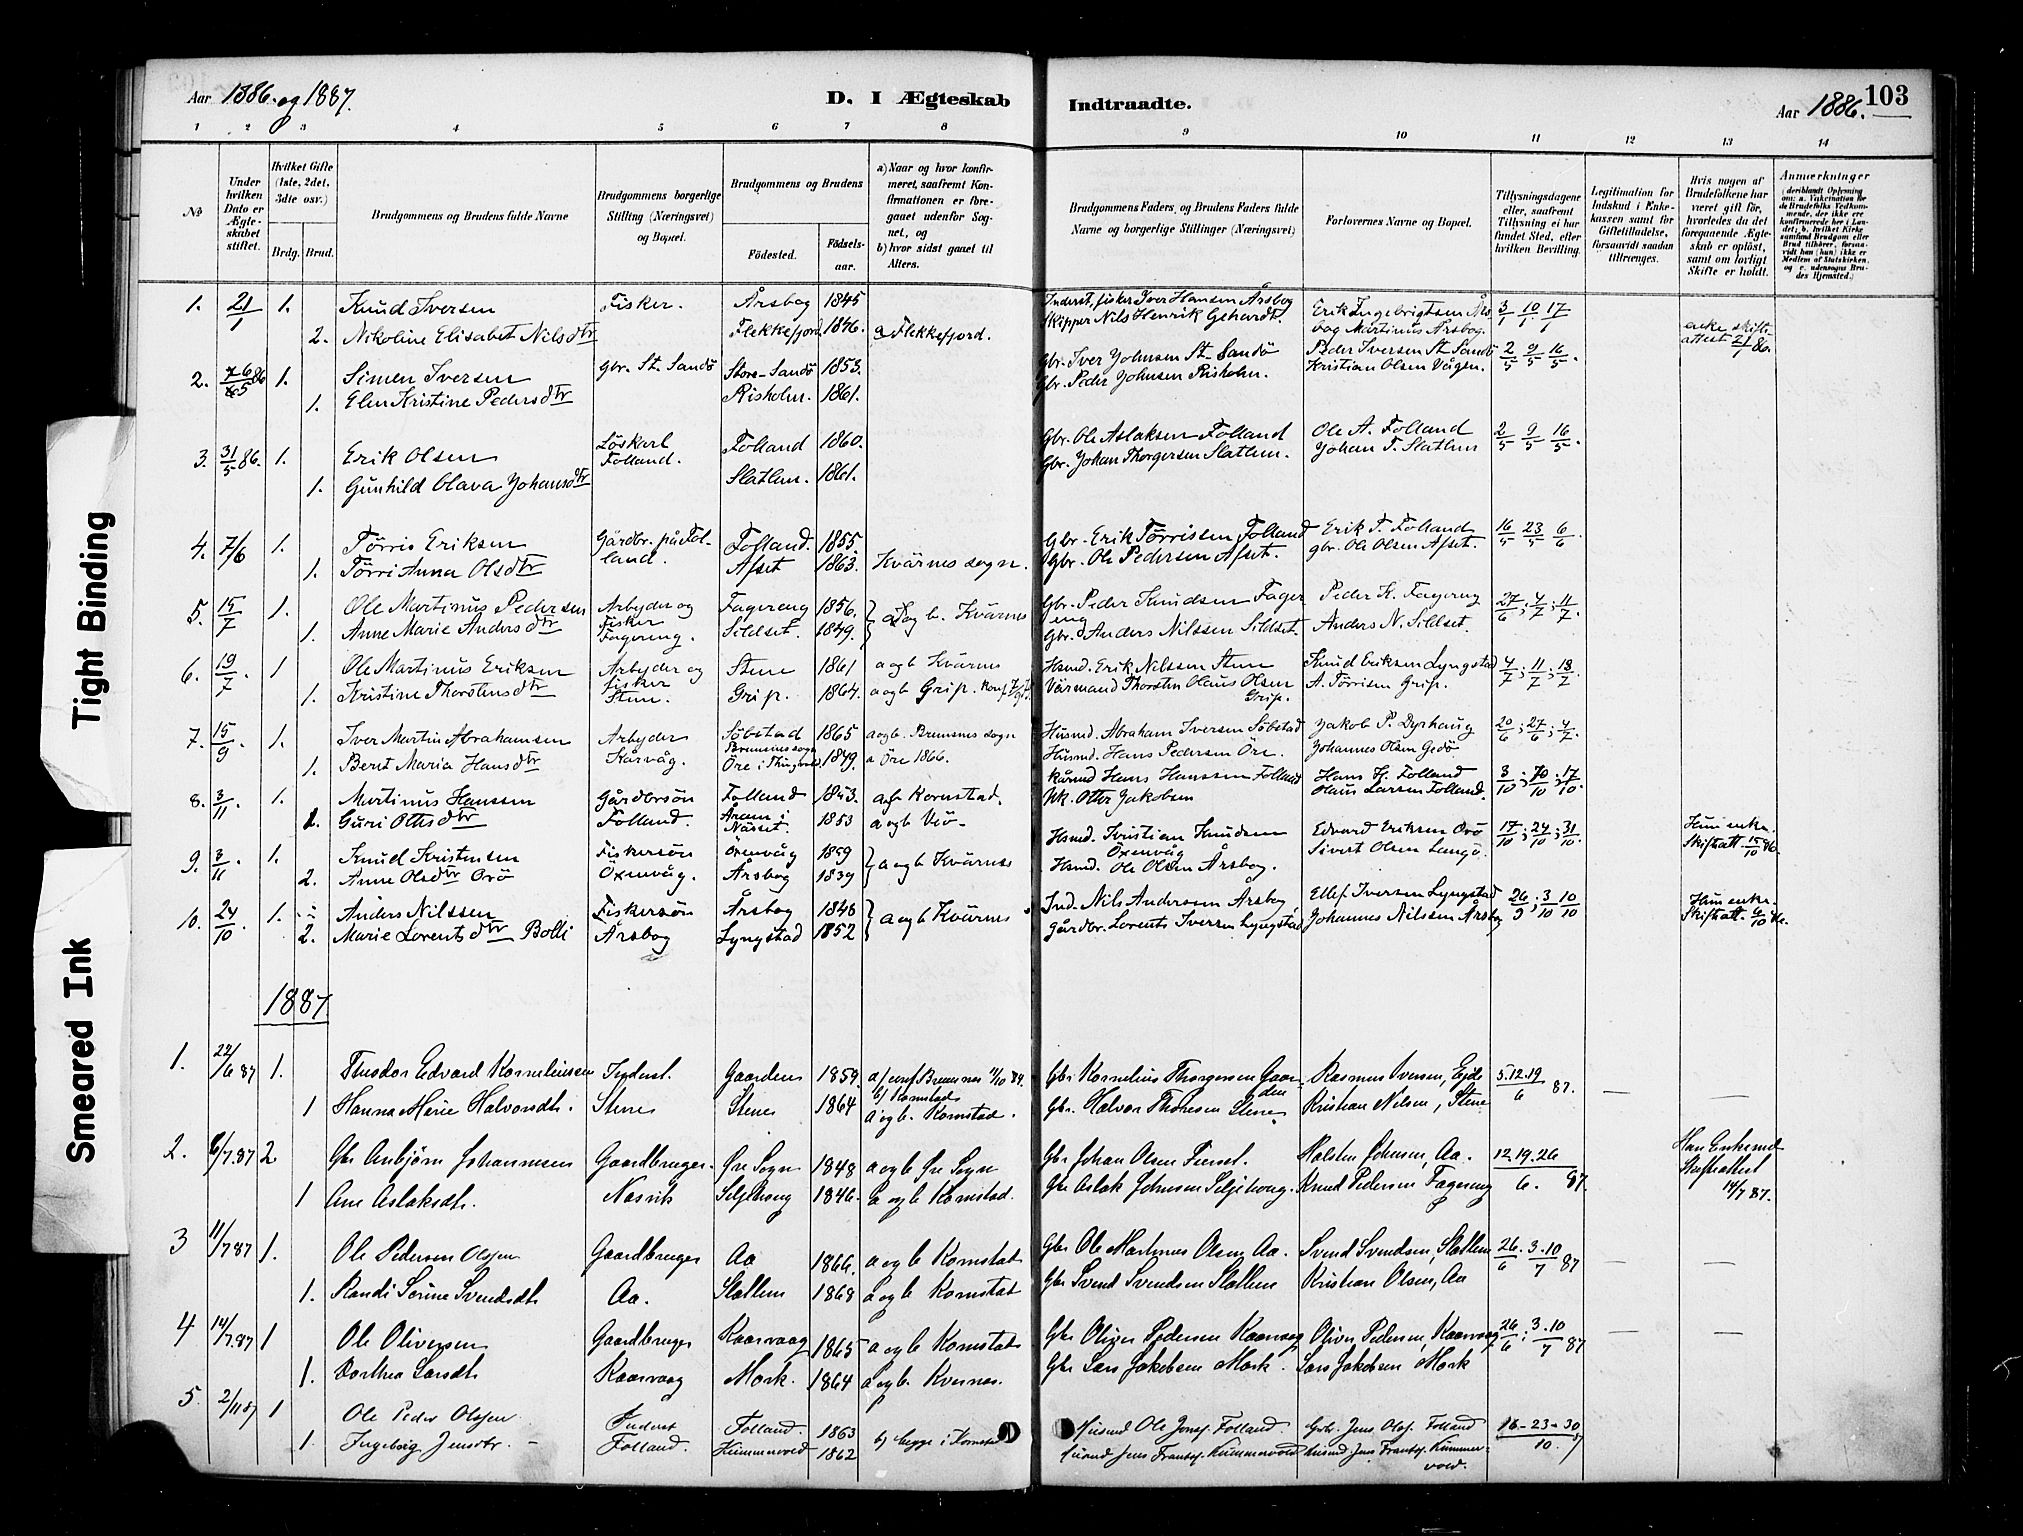 Aar 1886. og 1887.
D. I Ægteskab Indtraadte.
Aar 1886. 103
1 2 3 4 5 6 7 8 9 10 11 12 13 14
No
Under hvilken Dato er Ægteskabet stiftet.
Hvilket Gifte (1ste, 2det, 3die osv.)
Brdg. Brud.
Brudgommens og Brudens fulde Navne
Brudgommens borgerlige Stilling (Næringsvei) og Bopæl.
Brudgommens og Brudens
Födested.
Födselsaar.
a) Naar og hvor konfirmeret, saafremt Konfirmationen er foregaaet udenfor Sognet, og
b) hvor sidst gaaet til Alters.
Brudgommens Faders og Brudens Faders fulde Navne og borgerlige Stillinger (Næringsvei)
Forlovernes Navne og Bopæl.
Tillysningsdagene eller, saafremt Tillysning ei har fundet Sted, efter hvilken Bevilling.
Legitimation for Indskud i Enkekassen samt for Giftetilladelse, forsaavidt saadan tiltrænges.
Hvis nogen af Brudefolkene har været gift för, hvorledes da det foregaaende Ægteskab er oplöst, samt om lovligt Skifte er holdt.
Anmærkninger
1. 21/1 1. Knud Iversen Fisker. Årsbog 1845 Inderst, fisker Iver Hansen Årsbog Erik Ingebrigtsen Års- 3/1 10/1 17/1
2. Nikoline Elisabet Nilsdtr Flekkefjord 1846. a Flekkefjord. Skipper Nils Henrik Gehardt. bog Martinus Årsbog. enke skifteattest 21/1 86.
2. 86 1. Simen Iversen Gbr. St. Sandö Store-Sandö 1853. Gbr. Iver Johnsen St-Sandö Peder Iversen St Sandö 2/5 9/5 16/5.
1. Elen Kristine Pedersdtr Risholm. 1861. Gbr. Peder Johnsen Risholm. Kristian Olsen Vågen.
3. 31/5 86. 1. Erik Olsen Löskarl Folland. Folland 1860. Gbr. Ole Aslaksen Folland Ole A. Folland 2/5 9/5 16/5.
1. Gunhild Olava Johansdtr Slatlem. 1861. Gbr. Johan Thorgersen Slatlem. Johan T. Slatlem
4. 7/6 1. Tørris Eriksen Gårdbr. på Fol- Folland. 1855. Gbr. Erik Tørrissen Folland Erik T. Folland 16/5 23/5 6/6.
1. Tørri Anna Olsdtr land. Afset 1863. Kvärnes sogn. Gbr. Ole Pedersen Afset. gbr. Ole Olsen Afset.
5. 15/7 1. Ole Martinus Pedersen Arbyder og Fagereng 1856. Gbr. Peder Knudsen Fagereng Peder K. Fagereng 27/6; 4/7; 11/7.
1. Anne Marie Andersdtr Fisker Fagereng. Sildset. 1849. a og b. Kvärnes Gbr. Anders Nilssen Sildset. Anders N. Sildset.
6. 19/7. 1 Ole Martinus Eriksen Arbyder og Stene 1861 a og b Kvärnes Hsmd. Erik Nilssen Stene Knud Eriksen Lyngstad 4/7; 11/7; 18/7.
1. Kristine Thorstensdtr Fisker Stene. Grip. 1864. a og b Grip. Värmand Thorsten Olaus Olsen Grip. A. Tørrisen Grip.
7. 15/9. 1. Iver Martin Abrahamsen Arbyder Söbstad Bremsnes sogn 1865 a og b. Bremsnes sogn Husmd. Abraham Iversen Söbstad Jakob P. Dyrhaug 20/6; 27/6; 4/7.
1. Berit Maria Hansdtr Kårvåg. Öre i Thingvold. 1849. a Öre 1866. Husmd. Hans Pedersen Öre. Johannes Olsen Gedö
8. 3/11 1. Martinus Hanssen Gårdbrsön Folland 1843. a og b Kornstad. Kårmd Hans Hanssen Folland Hans H. Folland 3/10; 10/10; 17/10.
Guri Ottisdtr Folland. Åram i Nässet. 1853 a og b Veö- Otter Jakobsen Olaus Larsen Folland.
9. 3/11. 1. Knud Kristensen Fiskersön Öxenvåg 1859 Hsmd. Kristian Knudsen Öxenvåg Edvard Eriksen Orö 17/10; 24/10; 31/10. Hun enke.
2. Anne Olsdtr Orö Öxenvåg. Årsbog 1839 a og b Kvärnes Hsmd. Ole Olsen Årsbog. Sivert Olsen Langö. Skifteatt. 15/10 86.
10. 24/10. 1. Anders Nilssen Fiskersön Årsbog 1848 Ind. Nils Andersen Årsbog Ellef Iversen Lyngstad 26/9; 3/10 10/10 Hun enke.
2. Marie Lorentsdtr Bolli Årsbog Lyngstad 1852 a og b Kvärnes Gårdbr. Lorents Iversen Lyngstad Johannes Nilssen Årsbog Skifteatt. 6/10
1887
1. 22/6 87 1. Theodor Edvard Korneliusen Inderst. Gaarden 1859. a) conf Bremsnes 11/10 b) Kornstad Gbr Kornelius Thorgersen Gaarden Rasmus Iversen, Eide 5.12.19/6 87. — —
1 Hanna Marie Halvorsdt. Stene Stene 1864 a og b. Kornstad. Gbr. Halvor Thoresen Stene Kristian Nilsen, Stene
2. 6/7.87 2 Gbr Anbjørn Johannesen Gaardbruger. Øre Sogn 1848 a og b Øre Sogn Gbr Johan Olsen Halsten Johnsen, Aa. 12.19.26/6. 87. Han Enkemd Skifteattest 14/7 87.
1 Ane Aslaksdt. Nasvik Seljehaug 1846. a og b Kornstad. Gbr Aslak Johnsen Seljehaug. Knud Pedersen Fagereng
3 11/7 87 1. Ole Pedersen Olsen Gaardbruger Aa 1866. a og b Kornstad Gbr Ole Martinus Olsen Aa. Svend Svendsen, Slatlem 26/6. 3.10/7 87 — —
1. Randi Sørine Svendsdt. Aa. Slatlem 1868 a og b Kornstad Gbr Svend Svendsen Slatlem Kristian Olsen, Aa
4 14/7.87 1 Ole Oliversen Gaardbruger Kaarvaag 1865 a og b Kornstad Gbr Oliver Pedersen Kaarvaag Oliver Pedersen, Kaarvaag 26/6. 3.10/7 87 — —
1. Dorthea Larsdt. Kaarvaag Mork. 1864 a og b. Kvernes. Gbr Lars Jakobsen Mork. Lars Jakobsen Mork
5. 2/11 87 1 Ole Peder Olssen Inderst Folland. 1863 Husmd Ole Jonss. Folland. Gbr. Jens Olss. Folland 16-23-30/10. 87
1. Ingeborg Jensdtr. Folland. Kummervold 1862 b) begge i Kornstad Husmd Jens Frantss. Kummervold husmd. Jens Frantss. Kummervold.
Tight Binding
Smeared Ink